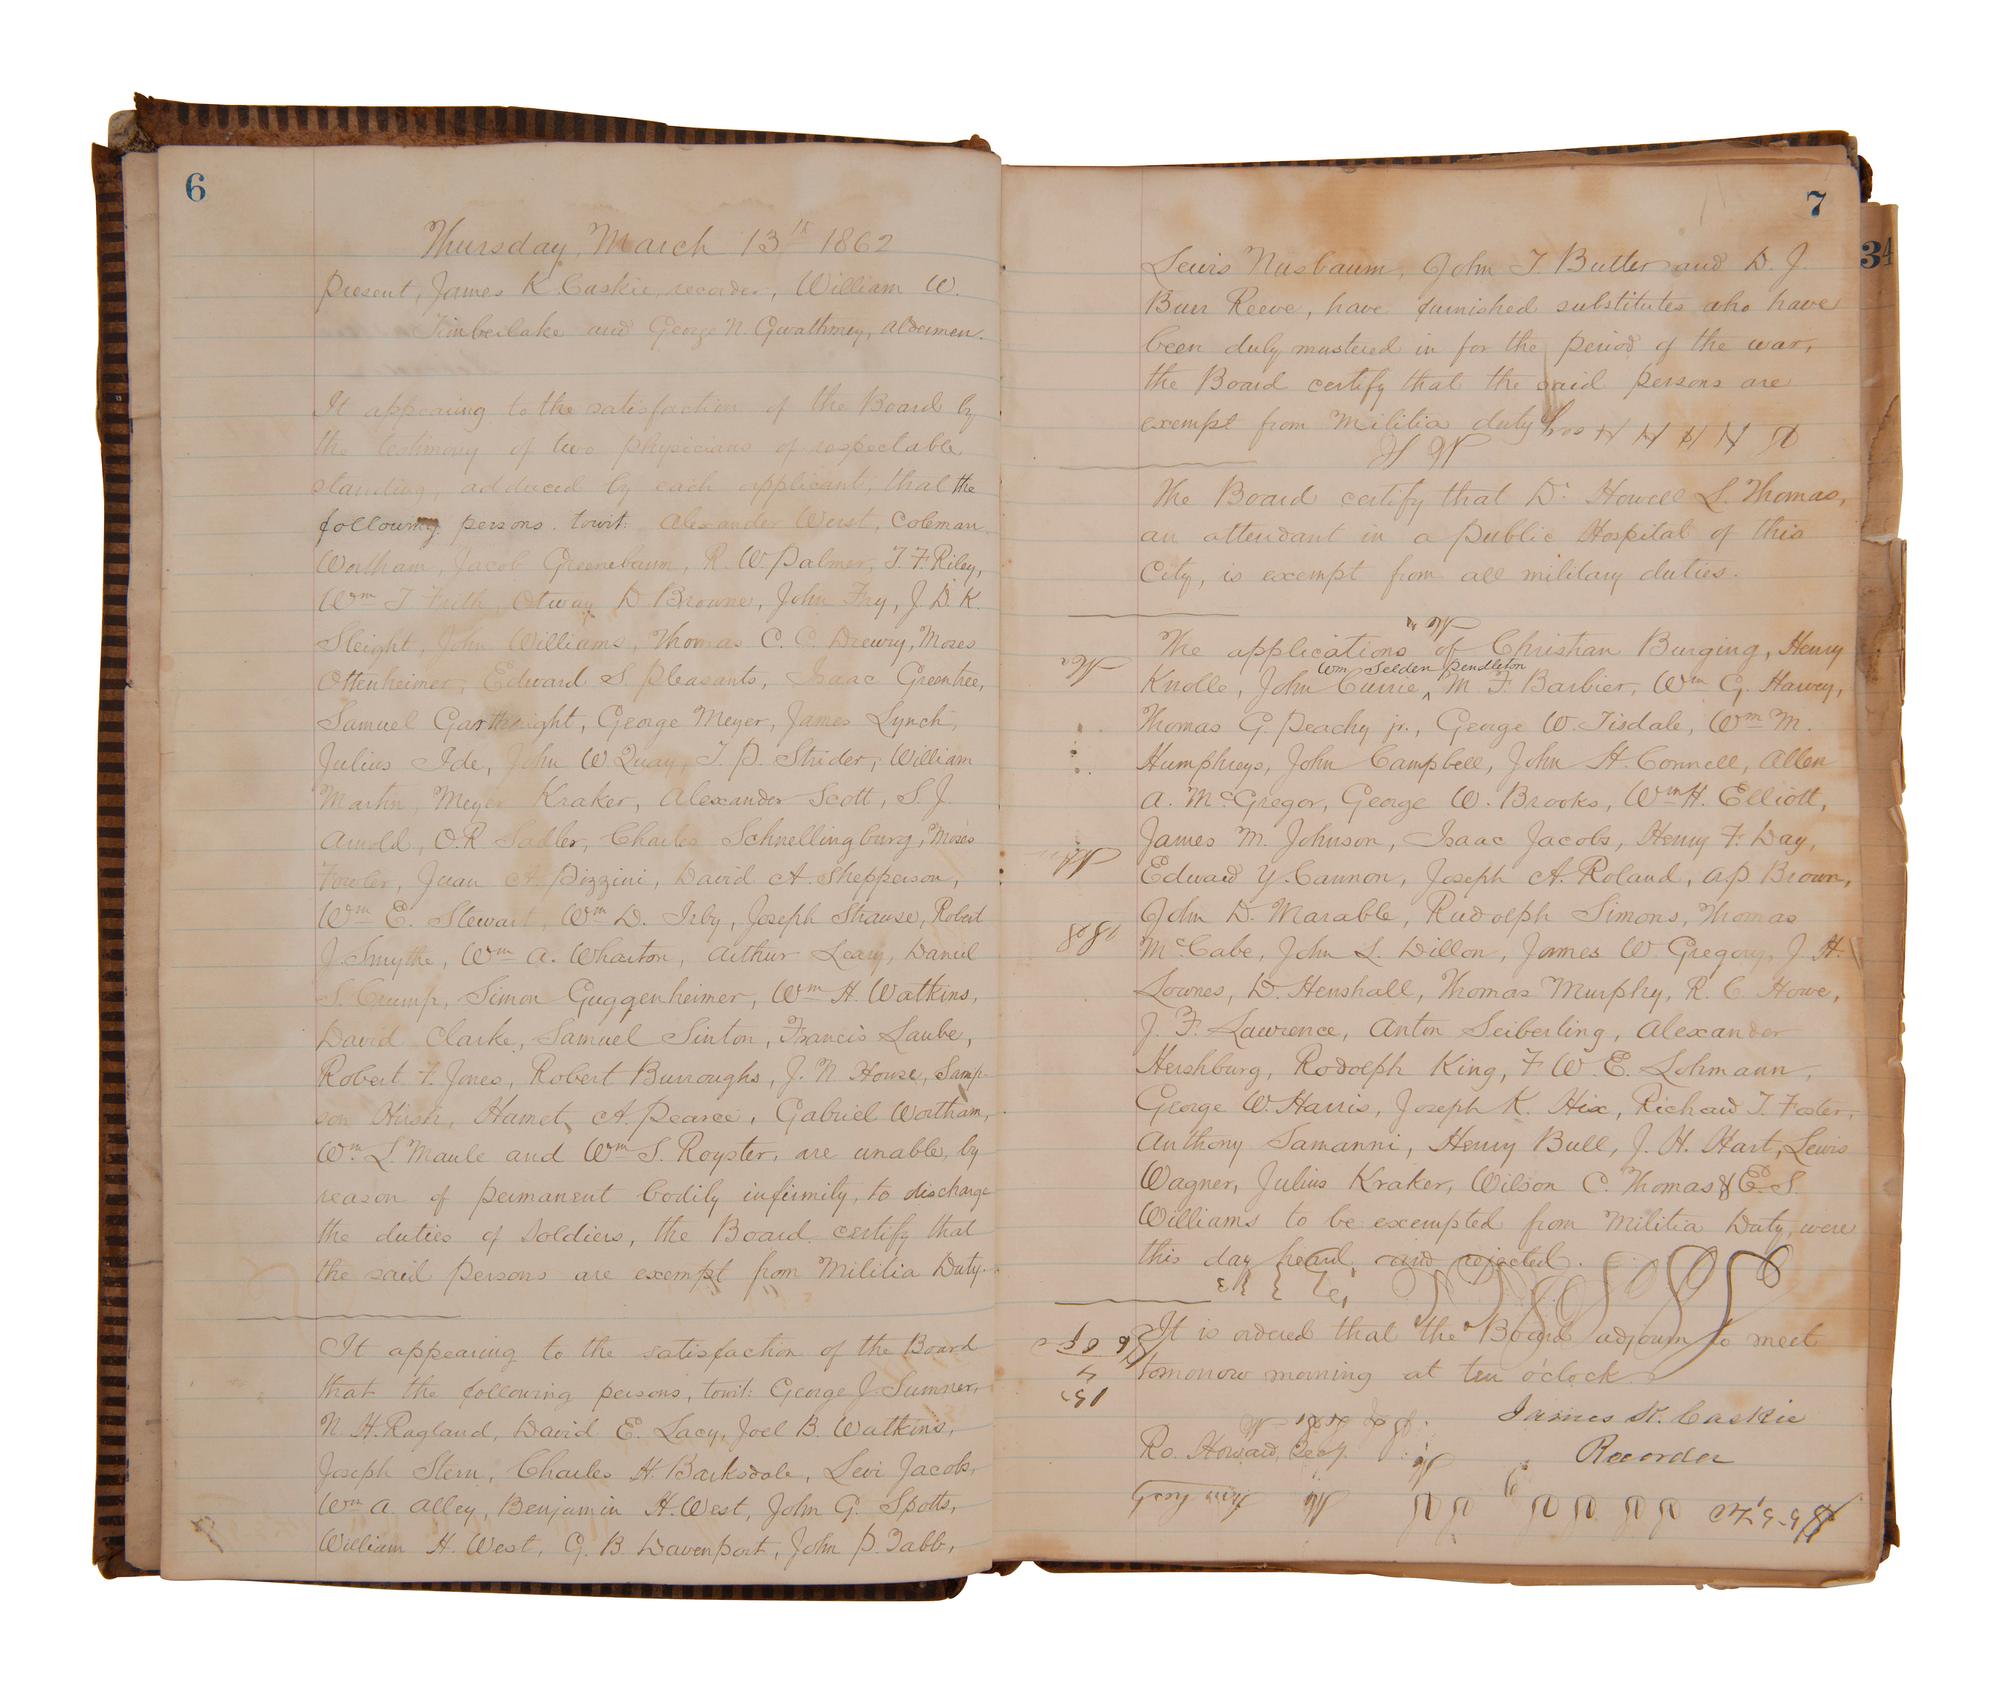 6
Thursday, March 13th 1862
Present, James K. Caskie, recorder, William W.
Timberlake and George N. Gwathmey, aldermen.
It appearing to the satisfaction of the Board by
the testimony of two physicians of respectable
standing, adduced by each applicant, that the
following persons, towit: Alexander Weist, Coleman
Wortham, Jacob Greenebaum, R. W. Palmer, T. F. Riley,
Wm T Frith, Otway D Browne, John Fry, J. D. K.
Sleight, John Williams, Thomas C. C. Drewry, Moses
Ottenheimer, Edward S. Pleasants, Isaac Greentree,
Samuel Garthright, George Meyer, James Lynch,
Julius Ide, John W Quay, T. P. Strider, William
Martin, Meyer Kraker, Alexander Scott, S. J.
Arnold, O. R Sadler, Charles Schnellingburg, Moses
Fowler, Juan A. Pizzini, David A. Shepperson,
Wm E. Stewart, Wm D. Irby, Joseph Strause, Robert
J. Smythe, Wm A. Wharton, Arthur Leary, Daniel
S. Crump, Simon Guggenheimer, Wm H. Watkins,
David Clarke, Samuel Sinton, Francis Laube,
Robert T. Jones, Robert Burroughs, J. N House, Samp-
son Hirsh, Hamet A. Pearce, Gabriel Wortham,
Wm L. Maule and Wm S. Royster, are unable, by
reason of permanent bodily infirmity, to discharge
the duties of soldiers, the Board certify that
the said persons are exempt from Militia Duty.
It appearing to the satisfaction of the Board
that the following persons, towit: George J. Sumner,
N. H. Ragland, David E. Lacy, Joel B. Watkins,
Joseph Stern, Charles H. Barksdale, Levi Jacobs,
Wm A. Alley, Benjamin H. West, John G. Spotts,
William H. West, G. B Davenport, John P. Tabb,
7
34
Lewis Nusbaum, John T Butler and D. J.
Burr Reeve, have furnished substitutes who have
been duly mustered in for the period of the war,
the Board certify that the said persons are
exempt from Militia duty
The Board certify that Dr Howell L. Thomas,
an attendant in a public Hospital of this
City, is exempt from all military duties.
The applications of Christian Burging, Henry
Wm Selden, Pendleton
Knolle, John Currie, M. F. Barbier, Wm G. Harvey,
Thomas G. Peachy jr., George W. Tisdale, Wm M.
Humphreys, John Campbell, John H. Connell, Allen
A. McGregor, George W. Brooks, Wm H. Elliott,
James M. Johnson, Isaac Jacobs, Henry F. Day,
Edward Y. Cannon, Joseph A. Roland, A P Brown,
John D. Marable, Rudolph Simons, Thomas
McCabe, John L. Dillon, James W. Gregory, J. H.
Lownes, D. Henshall, Thomas Murphy, R. C. Howe,
J. F. Lawrence, Anton Seiberling, Alexander
Hershburg, Rodolph King, F. W. E. Lohmann,
George W. Harris, Joseph K. Hix, Richard T. Foster,
Anthony Samanni, Henry Bull, J. H. Hart, Lewis
Wagner, Julius Kraker, Wilson C. Thomas & E. S.
Williams to be exempted from Militia Duty, were
this day heard and rejected.
It is ordered that the Board adjourn to meet
tomorrow morning at ten o'clock
James K. Caskie
Ro. Howard, Secy. Recorder